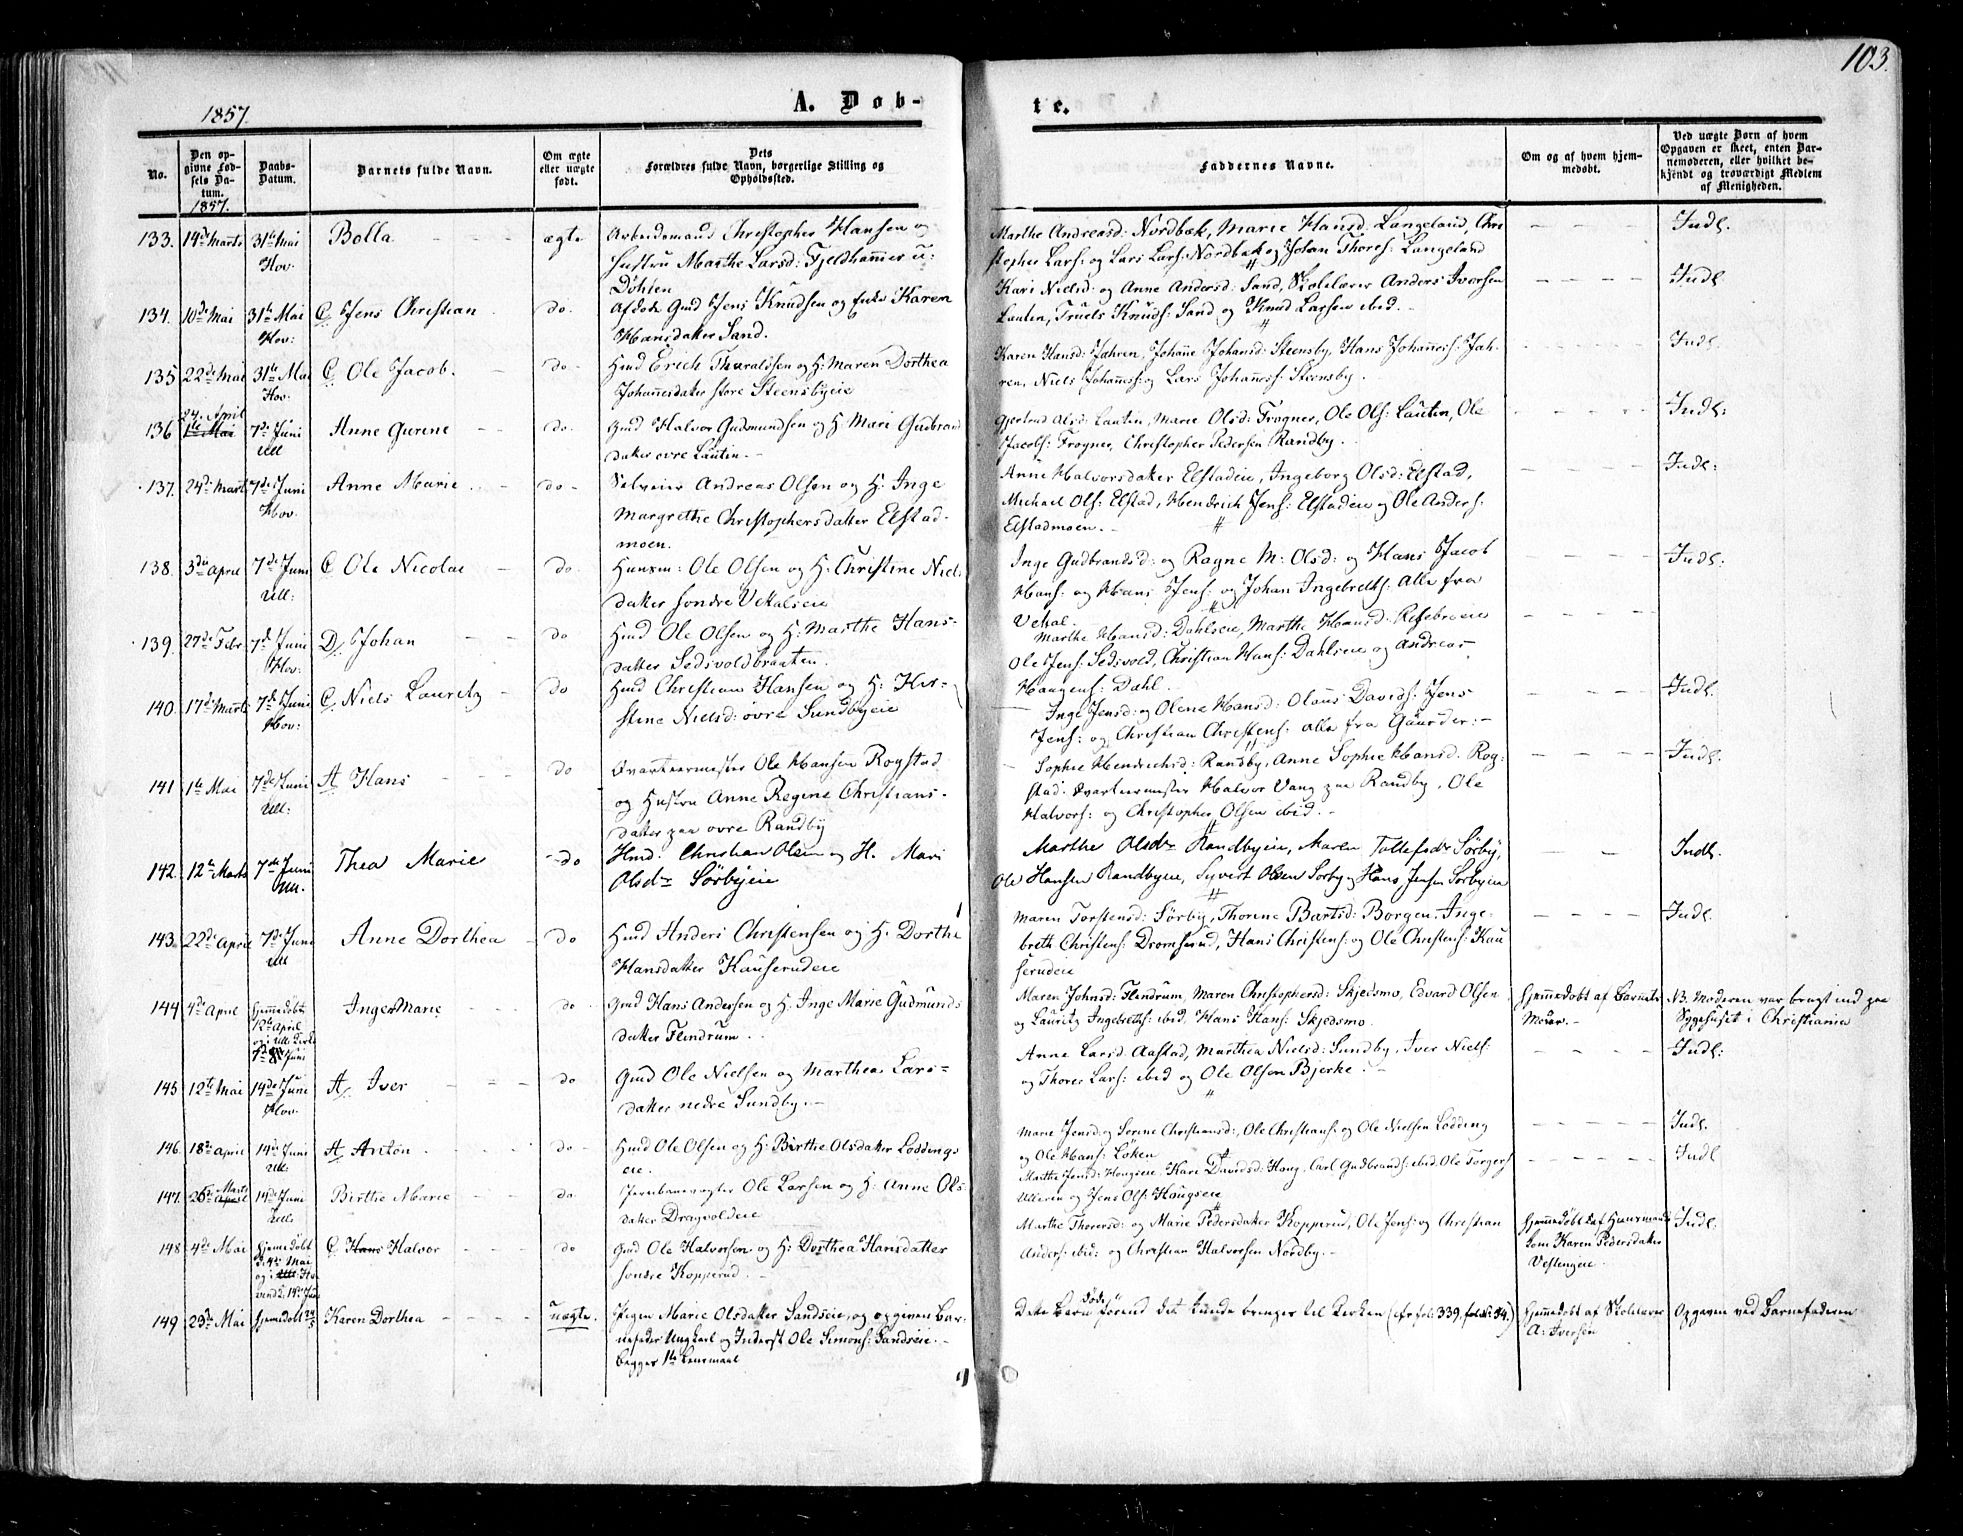 103.
1857.
A. Døb-
te.
No.
Den op-
givne Fød-
sels Da-
tum.
1857.
Daabs-
Datum.
Barnets fulde Navn.
Om ægte
eller uægte
født.
Dets
Forældres fulde Navn, borgerlige Stilling og
Opholdssted.
Faddernes Navne.
Om og af hvem hjem-
medøbt.
Ved uægte Børn af hvem
Opgaven er skeet, enten Bar-
nemoderen, eller hvilket be-
kjendt og troværdigt Medlem
af Menigheden.
133. 14de Marts 31te Mai Bolla ægte Arbeidsmand Christopher Hansen og
Hov. Hustru Marthe Larsd: Fjeldhammer u:
Døhlen
Marthe Andreasd: Nordbæk, Marie Hansd. Langeland, Chri
stopher Lars: og Lars Lars: Nordbæk og Johan Thores: Langeland
Indl.
134. 10de Mai 31te Mai C. Jens Christian do. Afdøde Gmd Jens Knudsen og Enke Karen
Hov: Hansdatter Sand.
Kari Nielsd: og Anne Andersd: Sand, Skolelærer Anders Iversen
Lautin, Truels Knuds: Sand og Knud Larsen ibid.
Indl.
135 22de Mai 31te Mai C. Ole Jacob. do Hmd Erich Thoraldsen og H: Maren Dorthea
Hov. Johannesdatter store Steensbyeie
Karen Hansd: Jahren, Johanne Johansd: Steensby, Hans Johanness: Jah-
ren, Niels Johanness: og Lars Johanness: Steensby.
Indl.
136 24. April 1te Mai 7de Juni Anne Gurine do. Gmd Halvor Gudmundsen og H: Mari Gudbrand
Ull datter øvre Lautin.
Gjertrud Olsd: Lautin, Marie Olsd: Frogner, Ole Ols: Lautin, Ole
Jacobs: Frogner, Christopher Pedersen Randby.
Indl:
137. 24de Marts 7de Juni Anne Marie do Selveier Andreas Olsen og H. Inge
Hov. Margrethe Christophersdatter Elstad-
moen.
Anne Halvorsdatter Elstadeie, Ingeborg Olsd: Elstad,
Michael Ols: Elstad, Hendrich Jens: Elstadeie og Ole Anders:
Elstadmoen.
Indl:
138. 3die April 7de Juni C Ole Nicolai do. Huusm: Ole Olsen og H: Christine Niels
Ull: datter søndre Vekalseie
Inge Gudbrandsd: og Ragne M: Olsd: og Hans Jacob
Hans: og Hans Jens: og Johan Ingebreths: alle fra
Vekal.
Indl:
139. 27de Febr 7de Juni D. Johan do Hmd Ole Olsen og H: Marthe Hans-
Hov: datter Sedsvoldbraaten.
Marthe Hansd: Dahlseie, Marthe Hansd: Refebroeie
Ole Jens: Sedsvold, Christian Hans: Dahlseie og Andreas
Haagens: Dahl.
140. 17de Marts 7de Juni C. Niels Lauritz do Hmd Christian Hansen og H: Kir-
Hov: stine Nielsd: øvre Sundbyeie
Inge Jensd: og Olene Hansd: Olaus Davids: Jens
Jens: og Christian Christens: alle fra Gaarder:
Indl.
141 1te Mai 7de Juni A Hans do Qvarteermester Ole Hansen Rogstad
Ull: og Hustru Anne Regine Christians-
datter paa øvre Randby
Sophie Hendrichsd: Randby, Anne Sophie Hansd. Rog-
stad. Qvarteermester Halvor Vang paa Randby, Ole
Halvors: og Christopher Olsen ibid.
Indl.
142. 12te Marts 7de Juni Thea Marie do Hmd. Christian Olsen og H. Mari
Ull. Olsdr Sörbyeie
Marthe Olsdr Randbyeie, Maren Tollefsdr Sörby,
Ole Hansen Randbyeie, Syvert Olsen Sörby og Hans Jensen Sörbyeie
Indl.
143. 22de April 7de Juni Anne Dorthea do Hmd Anders Christensen og H. Dorthe
Ull Hansdatter Kauserudeie
Maren Torstensd: Sørby, Thorine Bartsd: Borgen, Inge-
breth Christens: Dromsrud, Hans Christens: og Ole Christens: Kau
serudeie
Indl.
144 4de April Hjemmedøbt Inger Marie do. Gmd Hans Andersen og H. Inge Marie Gudmunds
12te April
og i Ull: Kirke datter Flindrum
7de Juni
Maren Johnsd: Flindrum, Maren Christophersd: Skjedsmo, Edvard Olsen
og Lauritz Ingebreths: ibid, Hans Hans: Skjedsmo.
Hjemmedøbt af Barnets
Moder.
NB. Moderen var bragt ind paa
Sygehuset i Christiania
145 12te Mai 14de Juni A. Iver do Gmd Ole Nielsen og Marthea Lars-
Hov. datter nedre Sundby.
Anne Larsd: Aastad, Marthea Nielsd: Sundby, Iver Niels:
og Thorer Lars: ibid og Ole Olsen Bjerke.
Indl:
146. 18de April 14de Juni A. Anton do Hmd Ole Olsen og H: Birthe Olsdatter Løddings
Ull: eie.
Marie Jensd: og Sørine Christiansd:, Ole Christians: og Ole Nielsen Lødding
og Ole Hans: Løken
Indl.
147. 26de Marts April 14de Juni Birthe Marie do Jernbanevogter Ole Larsen og H: Anne Ols-
Ull: datter Dragvoldeie
Marthe Jensd: Haugseie, Kari Davidsd: Haug, Carl Gudbrands: ibid. Ole Torgers
Ulleren og Jens Ols: Haugseie
Indl
148 4de Mai Hjemmedøbt C. Hans Halvor do Gmd Ole Halvorsen og H: Dorthea Hansdatter
d: 4de Mai
og i Ull: Ho søndre Kopperud.
vind d: 14de Juni
Marthe Thorersd: og Marie Pedersdatter Kopperud, Ole Jens: og Christian
Anders: ibid: og Christian Halvorsen Nordby.
Hjemmedøbt af Huusmands
kone Karen Pedersdatter
Vestengeie.
Indl.
149 20de Mai Hjemmedøbt 24/5 Karen Dorthea uægte. Pigen Marie Olsdatter Sandseie, og opgiven Bar-
nefader Ungkarl og Inderst Ole Simons: Sandseie.
begges 1te Leiermaal
Dette Barn døde førend det kunde bringes til Kirken (cfr fol: 339, fol: No 34.)
Hjemmedøbt af Skolelærer
A: Iversen
Opgiven ved Barnefaderen